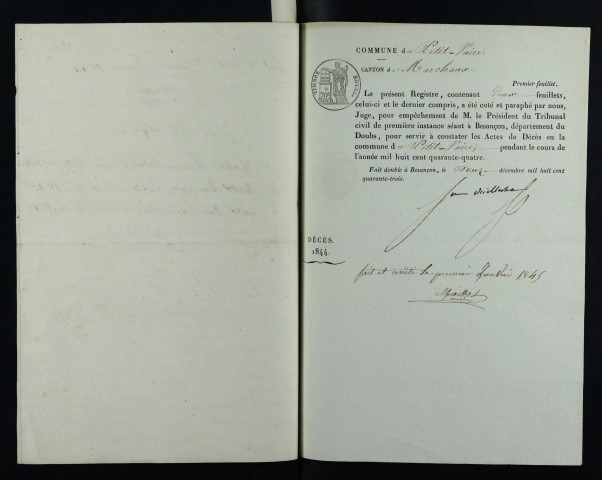 COMMUNE de Petit-Vaire
CANTON de Marchaux
Premier feuillet.
TIMBRE ROYAL
Le présent Registre, contenant Deux feuillets,
celui-ci et le dernier compris, a été coté et paraphé par nous,
Juge, pour empêchement de M. le Président du Tribunal
civil de première instance séant à Besançon, département du
Doubs, pour servir à constater les Actes de Décès en la
commune de Petit-Vaire pendant le cours de
l'année mil huit cent quarante-quatre.
Fait double à Besançon, le décembre mil huit cent
quarante-trois.
DÉCÈS.
1844.
fait et arrêté le premier Janvier 1845